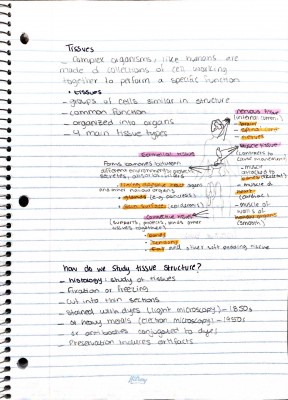 Tissues
- Complex organisms, like humans are
made of collections of cell working
together to perform a specific function
• tissues
- groups of cells similar in structure
- common function
- organized into organs
- 4 main tissue types
nervous tissue
(internal comm.)
- brain
- spinal cord
- nerves
muscle tissue
(contracts to
cause movement)
- muscle
attached to
- muscle of
- muscle of
walls of
hollow organs
(smooth)
Epithelial tissue
Forms boundaries between
different environments, protects,
secretes, absorbs, filters
- lining digestive tract organs
and other hollow organs
- glands
- skin surface (epidermis)
Connective tissue
(supports, protects, binds other
tissues together)
- bones
- tendons
- Fat and other soft padding tissue
how do we study tissue structure?
- histology: study of tissues
- Fixation or freezing
- cut into thin sections
- Stained with dyes (light microscopy) - 1850s
- or heavy metals (electron microscopy) - 1950s
- or antibodies conjugated to dyes
- Preservation induces artifacts
Hilroy